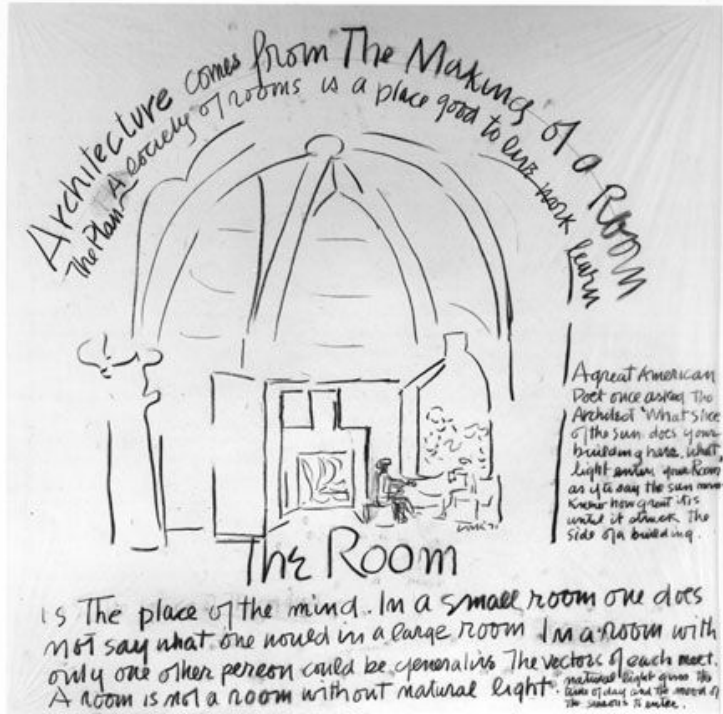 Architecture comes from The Making of a Room
The Plan A society of rooms is a place good to live work learn
A great American
Poet once asked the
Architect "What slice
of the sun does your
building have. what
light enters your Room
as if to say the sun never
knew how great it is
until it struck the
side of a building.
The Room
is The place of the mind. In a small room one does
not say what one would in a large room In a room with
only one other person could be generative The vectors of each meet.
A room is not a room without natural light. natural light gives the
time of day and the mood of
the seasons to enter.